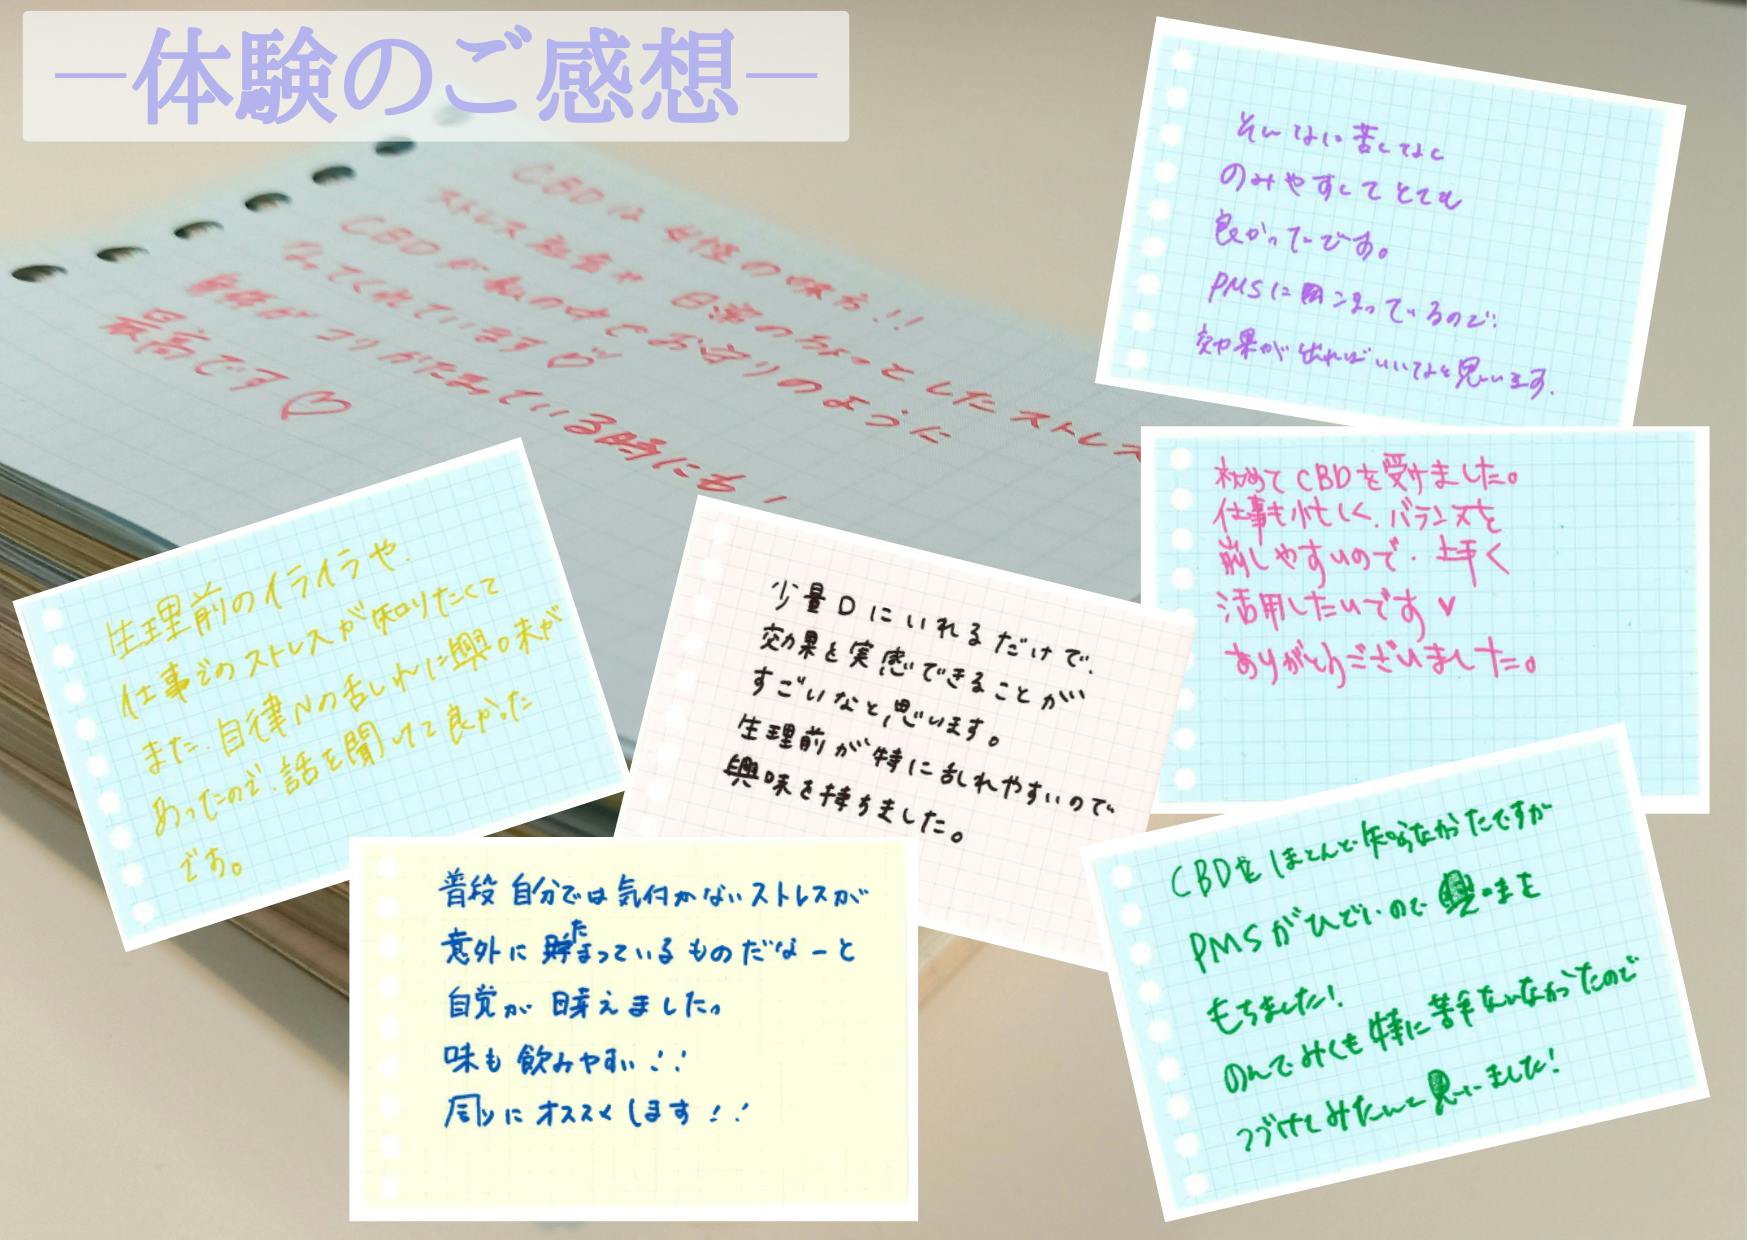 ―体験のご感想―
CBDは女性の味方!!
ストレス社会や日常のちょっとしたストレス
CBDが私の中でお守りのように
なってくれています♡
身体がコリがたまっている時にも!
最高です♡
そんなに苦くなく
のみやすくてとても
良かったです。
PMSに困こまっているので、
効果が出ればいいなと思います。
初めてCBDを受けました。
仕事も忙しく、バランスを
崩しやすいので、上手く
活用したいです♥
ありがとうございました。
生理前のイライラや、
仕事でのストレスが知りたくて
また、自律Nの乱れに興味が
あったので、話を聞けて良かった
です。
少量口にいれるだけで、
効果を実感できることが
すごいなと思います。
生理前が特に乱れやすいので
興味を持ちました。
普段自分では気付かないストレスが
意外に貯まっているものだなーと
た
自覚が芽えました。
味も飲みやすい!!
周りにオススメします!!
CBDをほとんど知らなかたですが
PMSがひどいので興味を
もちました!
のんでみくも特に苦手ないなかったので
つづけてみたいと思いました!